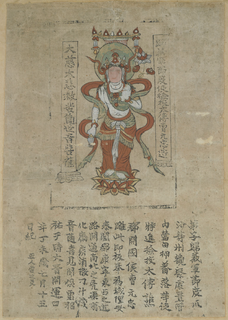 歸義軍節度使檢校太傅曹元忠造
大慈大悲救苦觀世音菩薩
弟子歸義軍節度瓜沙
等州觀察處置管
內營田押蕃落等使
特進檢校太傅譙
郡開國侯曹元忠
雕此印板奉為城隍安
泰闔郡康寧東西之道
路開通南北之凶渠順
化癘疾消散刁斗藏
音隨喜見聞俱霑福
祐于時大晉開運四
年丁未歲七月十五
日紀 匠人雷延美